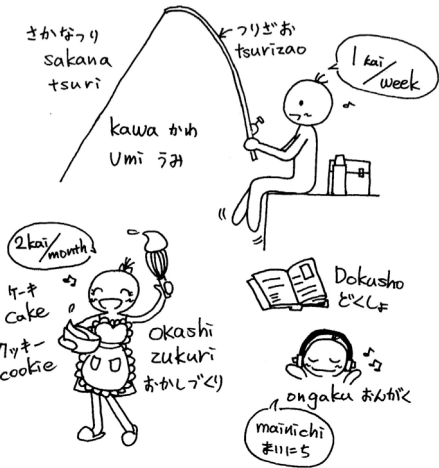 さかなつり
sakana
tsuri
つりざお
tsurizao
1 kai/
week
kawa かわ
umi うみ
2kai/
month
ケーキ
cake
クッキー
cookie
okashi
zukuri
おかしづくり
Dokusho
どくしょ
ongaku おんがく
mainichi
まいにち